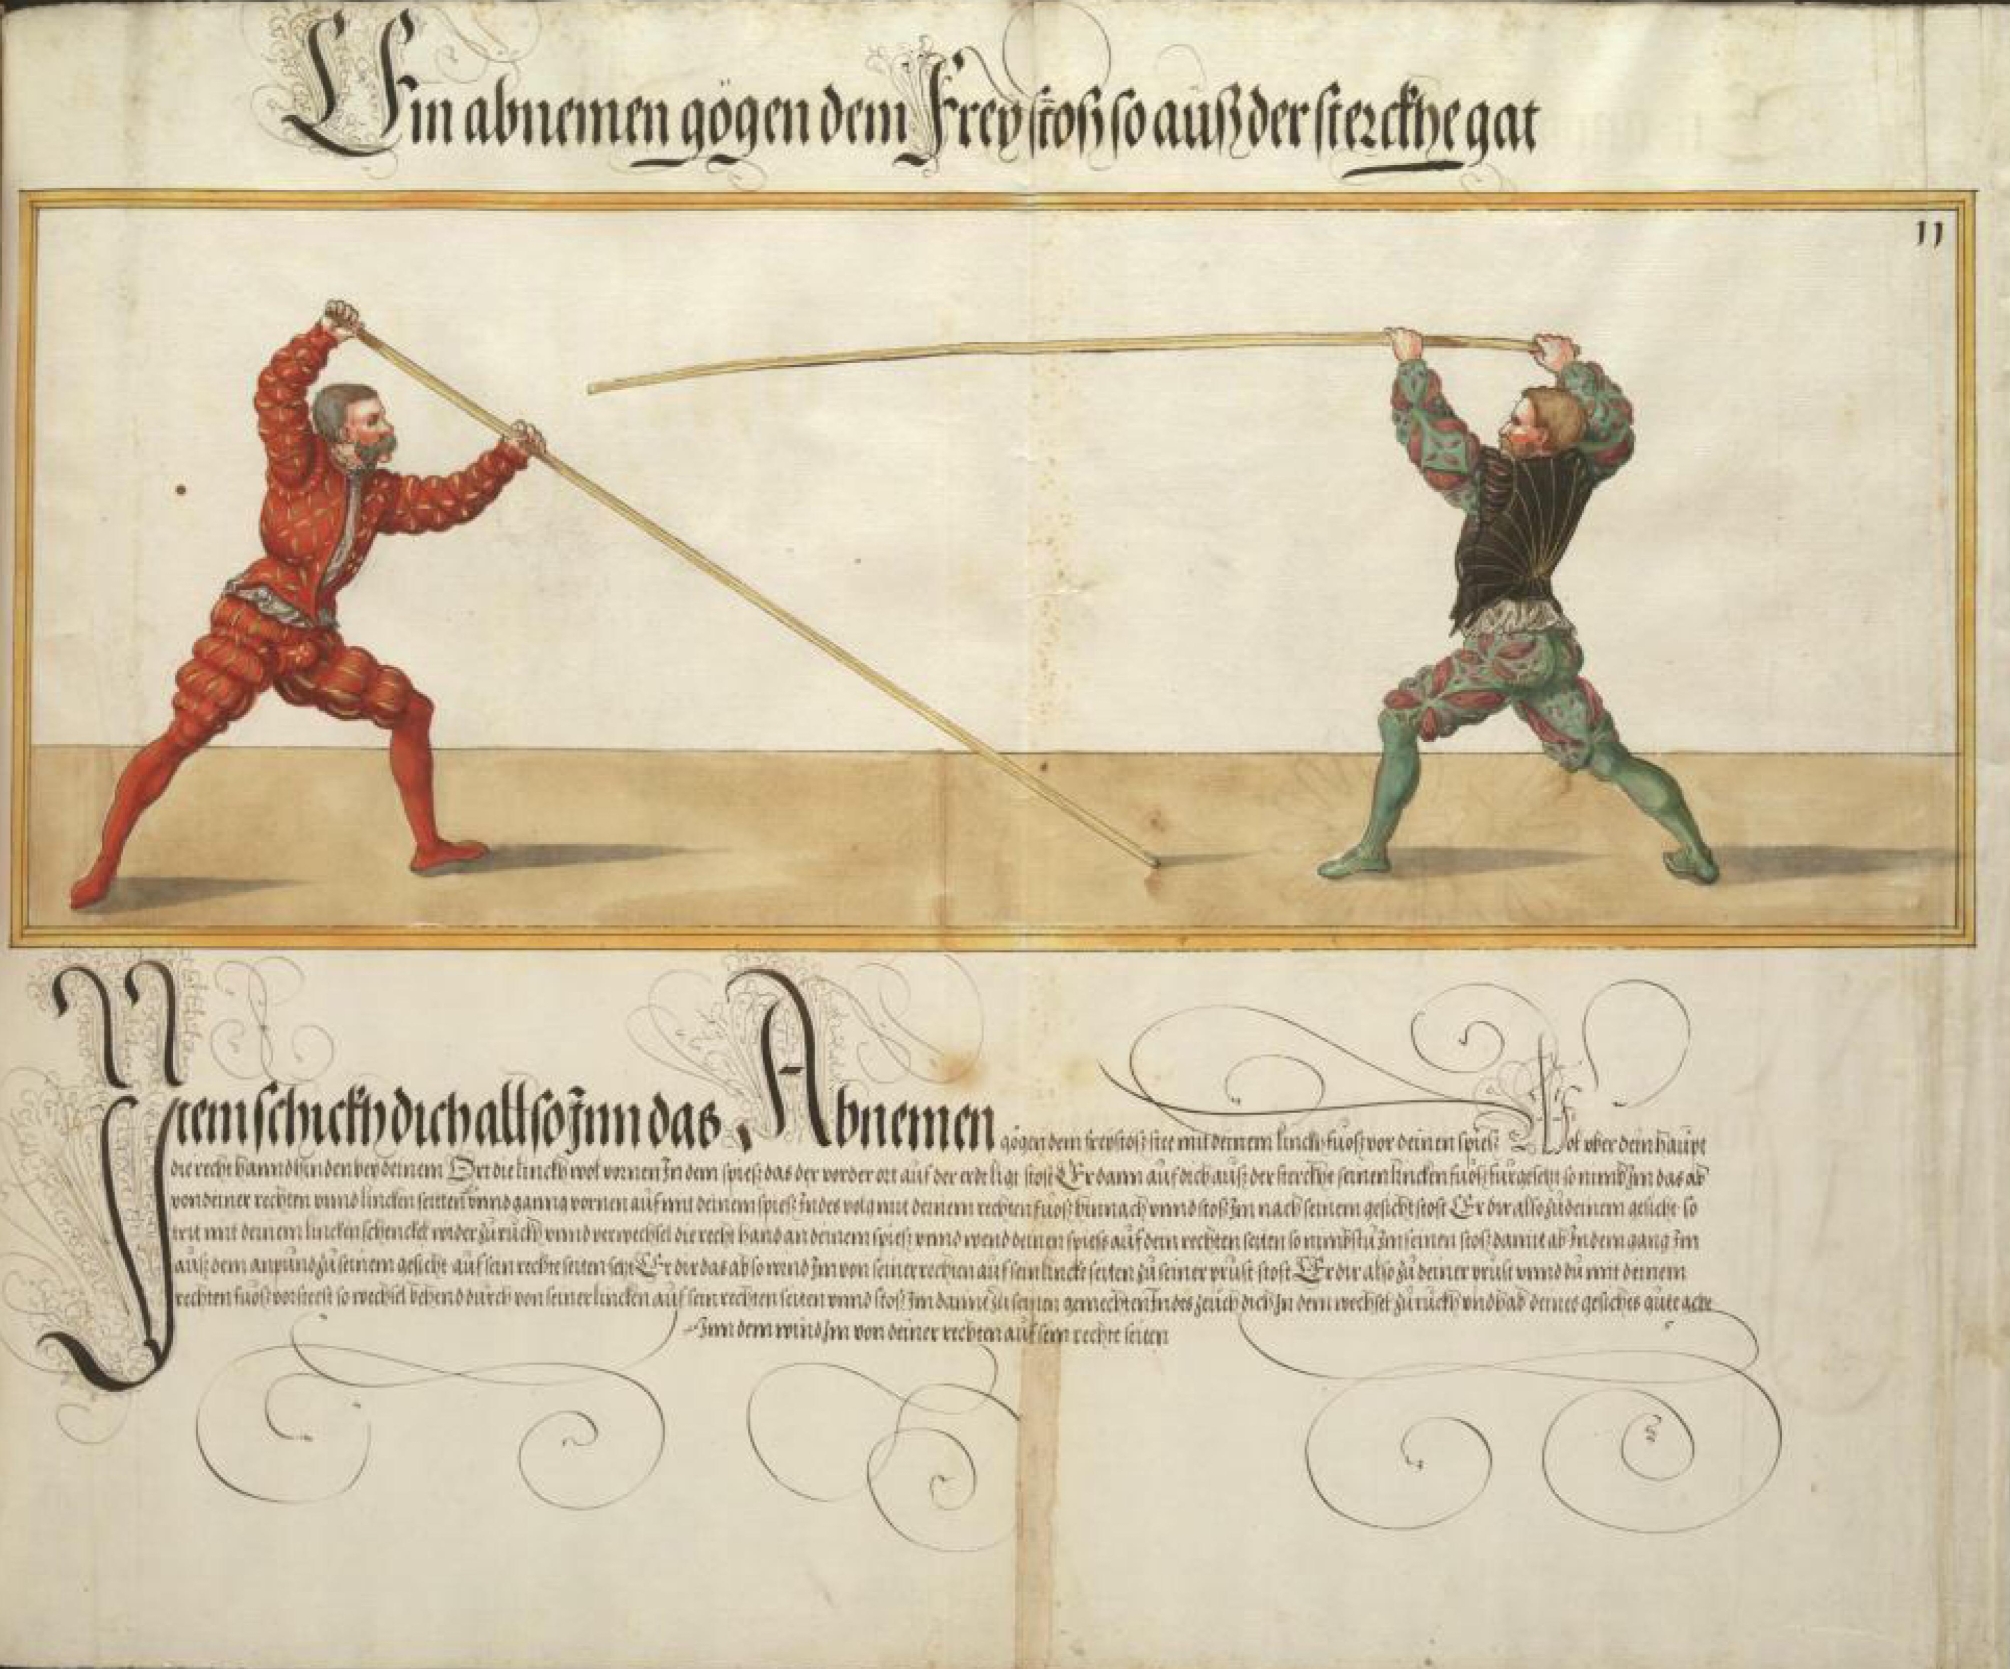 Ein abnemen gögen dem Freystoß so auß der sterckhe gat
11
Item schickh dich allso Inn das Abnemen gögen dem freystoß stee mit deinem linckh fuoß vor deinen spiess Wol vber dein haupt
die recht hannd hinden bey deinem Ort die linckh wol vornen In dem spiess das der vorder ort auf der erdt ligt stost Er dann auf dich auß der sterckhe seinen lincken fuoß fürgesetzt so nimb Im das ab
von deiner rechten vnnd lincken seitten vnnd ganng vornen auf mit deinem spiess Indes volg mit deinem rechten fuoß hinnach vnnd stoß Im nach seinem gesicht stost Er dir allso zu deinem gesicht so
trit mit deinem lincken schenckel wider zuruckh vnnd verwechsel die recht hand an deinem spiess vnnd wend deinen spiess auf dein rechten seiten so nimbstu Im seinen stoß damit ab In dem gang Im
auß dem anpund zu seinem gesicht auf sein rechte seiten setzt Er dir das ab so wind Im von seiner rechten auf sein lincke seiten zu seiner prust stost Er dir also zu deiner prust vnnd du mit deinem
rechten fuoß vorsteest so wechsel behend durch von seiner lincken auf sein rechten seiten vnnd stoß Im damit zu seinen gemechten Indes zeuch dich In dem wechsel zuruckh vnd hab deines gesichts gute acht
Inn dem wind Im von deiner rechten auf sein rechte seiten